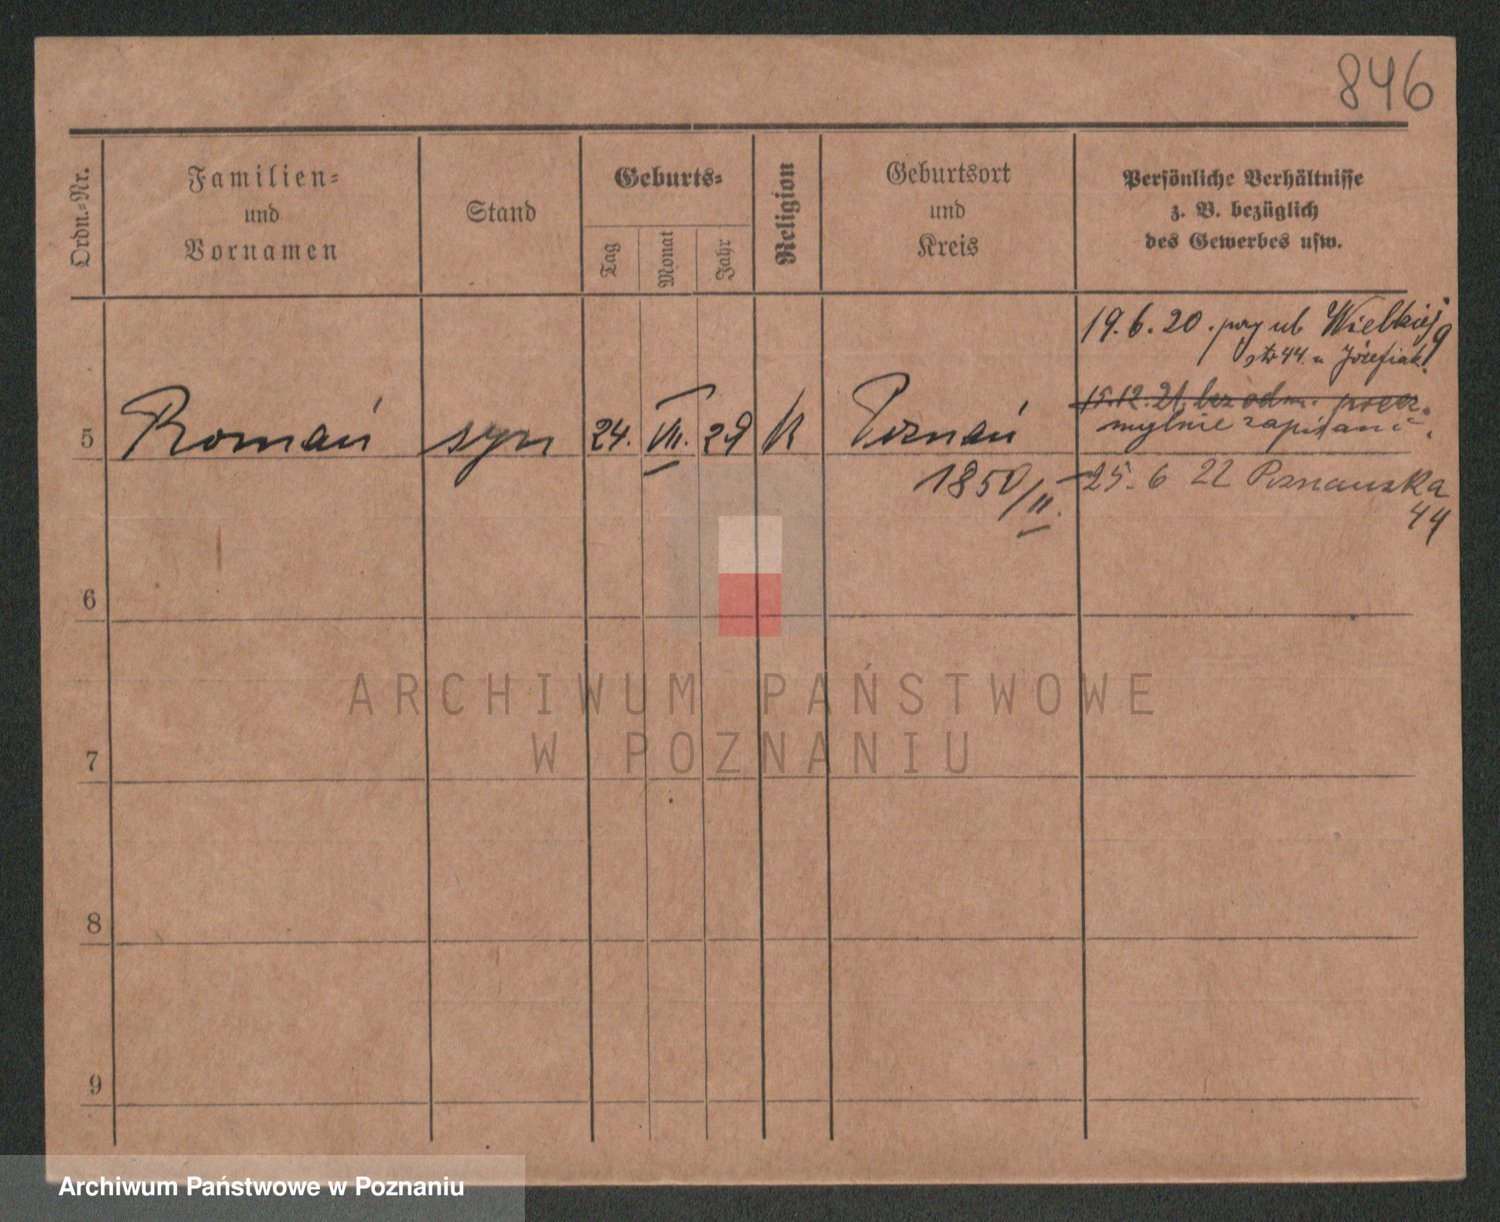 846
Ordn.-Nr.
Familien-
und
Vornamen
Stand
Geburts-
Tag
Monat
Jahr
Religion
Geburtsort
und
Kreis
Persönliche Verhältnisse
z. B. bezüglich
des Gewerbes usw.
19.6.20. przy ul. Wielkiej 9
str 44. u Józefiak.
5 Roman syn 24. VII. 29 K Poznań
15.12.21. bez odm.
mylnie zapisani
1850/II.
25. 6 22 Poznanska
44
6
7
8
9
ARCHIWUM PAŃSTWOWE
W POZNANIU
Archiwum Państwowe w Poznaniu